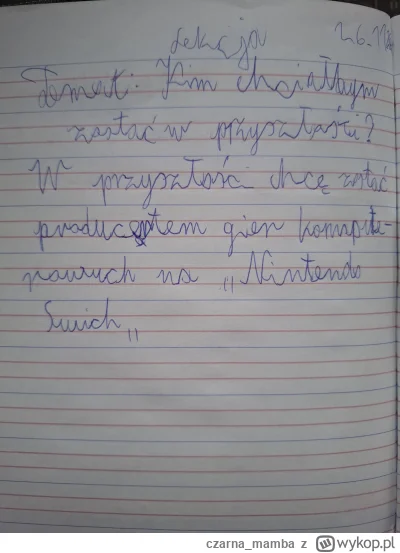 Lekcja 26.11
Temat: Kim chciałbym
zostać w przyszłości?
W przyszłości chcę zostać
producentem gier kompute-
rowych na „Nintendo
Swich„
czarna_mamba z wykop.pl